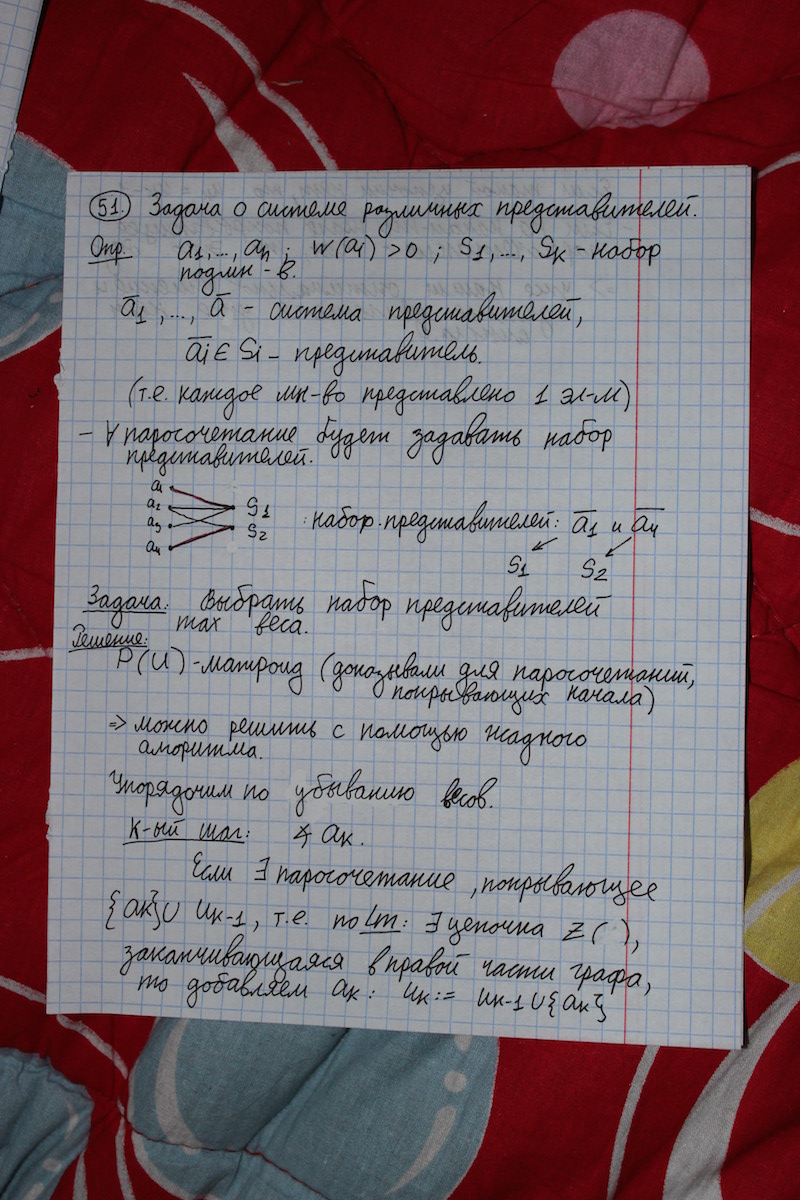 51. Задача о системе различных представителей.
Опр. a1,..., an ; w(ai) > 0 ; S1,..., Sk – набор
подмн-в.
a̅1 ,..., a̅ – система представителей,
a̅i ∈ Si – представитель.
(т.е. каждое мн-во представлено 1 эл-м)
– ∀ паросочетание будет задавать набор
представителей.
a1
a2
a3
a4
S1
S2
: набор представителей: a̅1 и a̅4
S1 S2
Задача: Выбрать набор представителей
max веса.
Решение:
P(U) – матроид (доказывали для паросочетаний,
покрывающих начала)
=> можно решить с помощью жадного
алгоритма.
Упорядочим по убыванию весов.
К-ый шаг: ∢ ak.
Если ∃ паросочетание, покрывающее
{ak} ∪ Uk-1, т.е. по Lm: ∃ цепочка Z( ),
заканчивающаяся в правой части графа,
то добавляем ak: Uk := Uk-1 ∪ {ak}